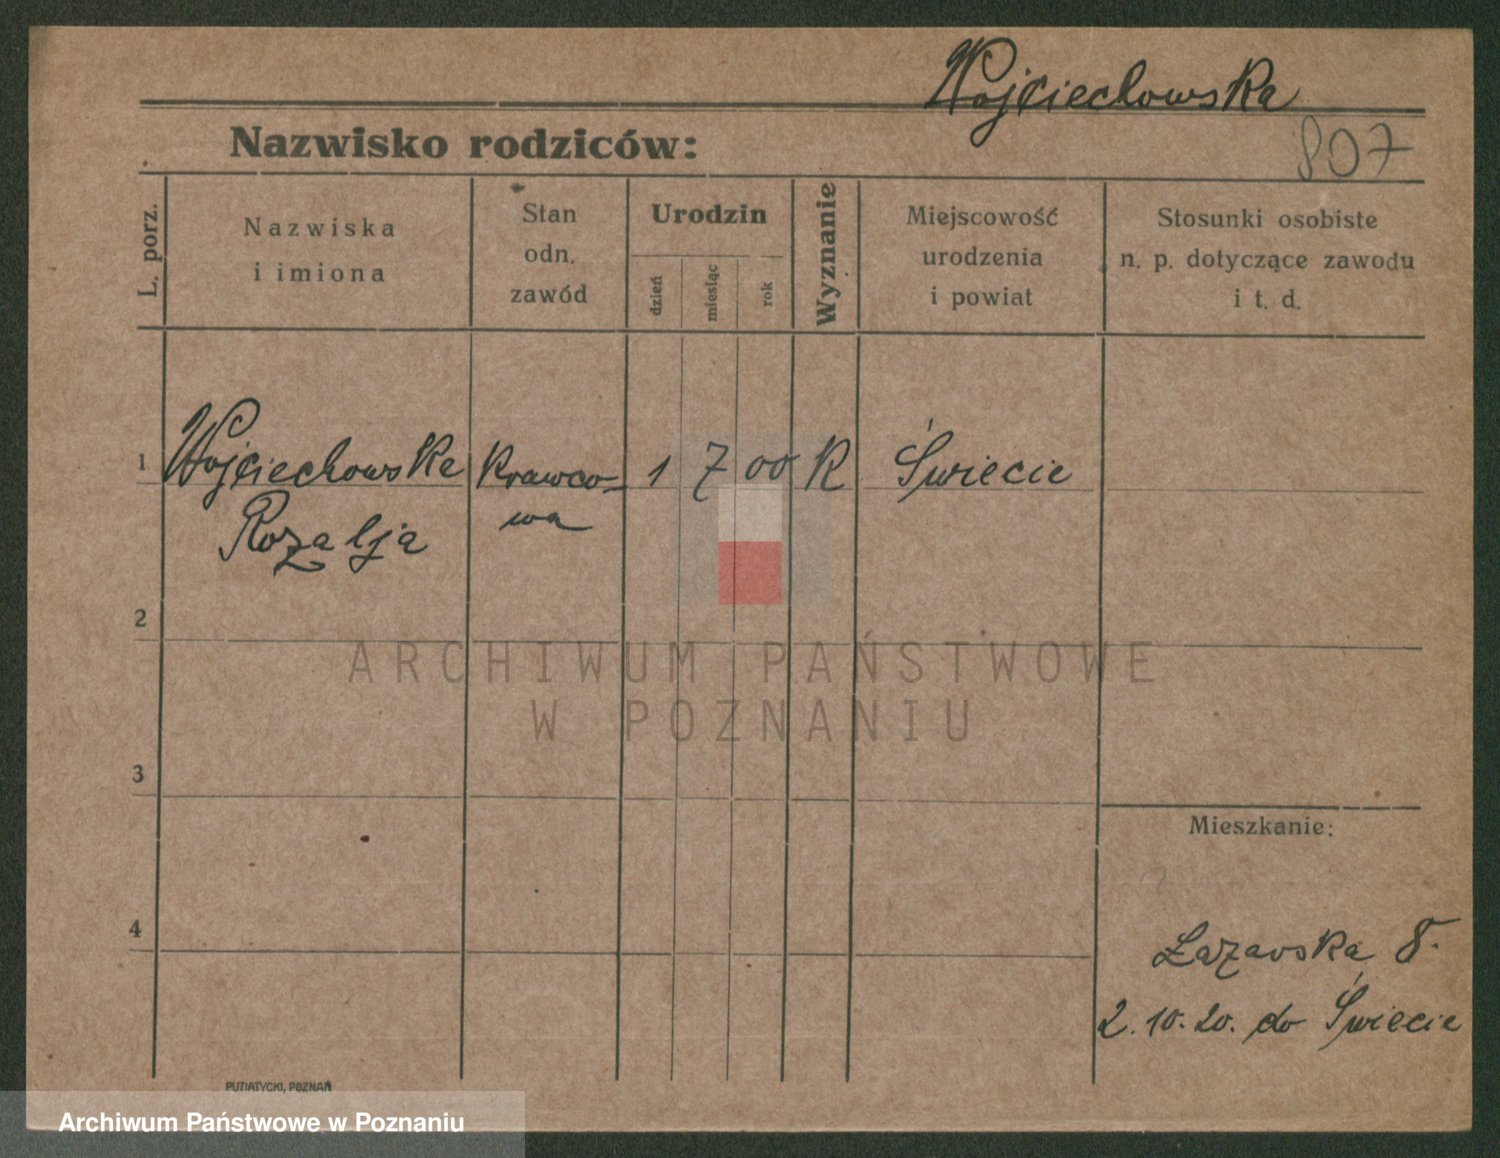 Wojciechowska
807
Nazwisko rodziców:
L. porz.
Nazwiska
i imiona
Stan
odn.
zawód
Urodzin
dzień
miesiąc
rok
Wyznanie
Miejscowość
urodzenia
i powiat
Stosunki osobiste
n. p. dotyczące zawodu
i t. d.
1 Wojciechowska Krawco- 1 7 00 K Świecie
Rozalja wa
2
ARCHIWUM PAŃSTWOWE
W POZNANIU
3
Mieszkanie:
4
Łazarska 8.
2.10.20. do Świecie
PUTIATYCKI, POZNAŃ
Archiwum Państwowe w Poznaniu